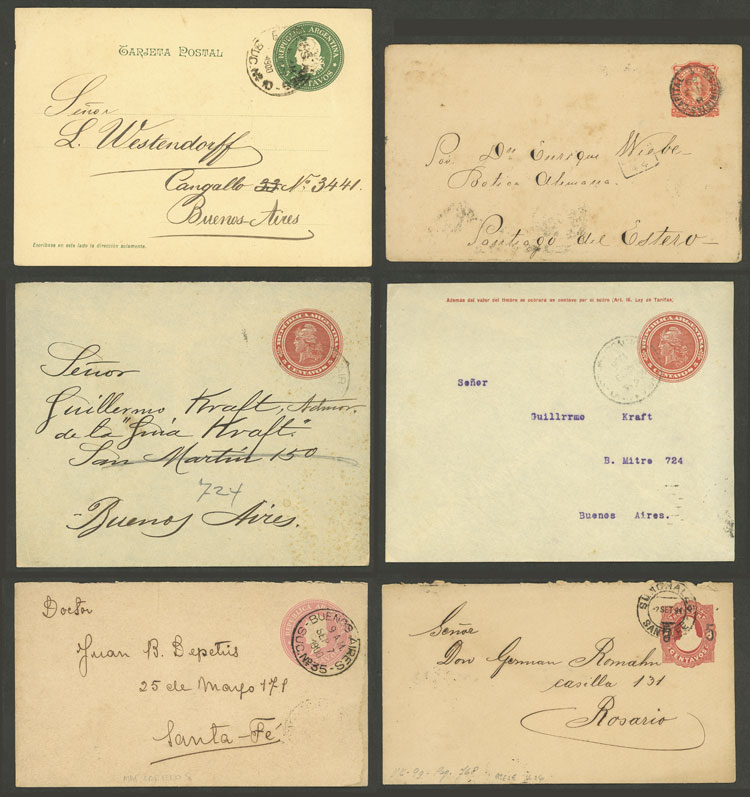 TARJETA POSTAL
REPUBLICA ARGENTINA
CENTAVOS
Señor
L. Westendorff
Cangallo 33 Nº 3441.
Buenos Aires
Escríbase en este lado la dirección solamente.
CAPITAL
Enrique Wiebe
Botica Alemana
Santiago del Estero
REPUBLICA ARGENTINA
5 CENTAVOS 5
Señor
Guillermo Kraft, Admor.
de la "Guia Kraft".
San Martin 150
724
Buenos Aires.
Además del valor del timbre se cobrará un centavo por el sobre (Art. 16, Ley de Tarifas)
REPUBLICA ARGENTINA
5 CENTAVOS 5
Señor
Guillrrmo Kraft
B. Mitre 724
Buenos Aires.
Doctor
BUENOS AIRES
9 A.M.
Juan B. Depetris
25 de Mayo 171
Santa Fé
SUCURSAL
7 SET
5 5
CENTAVOS
Señor
Don German Romahn
casilla 131
Rosario